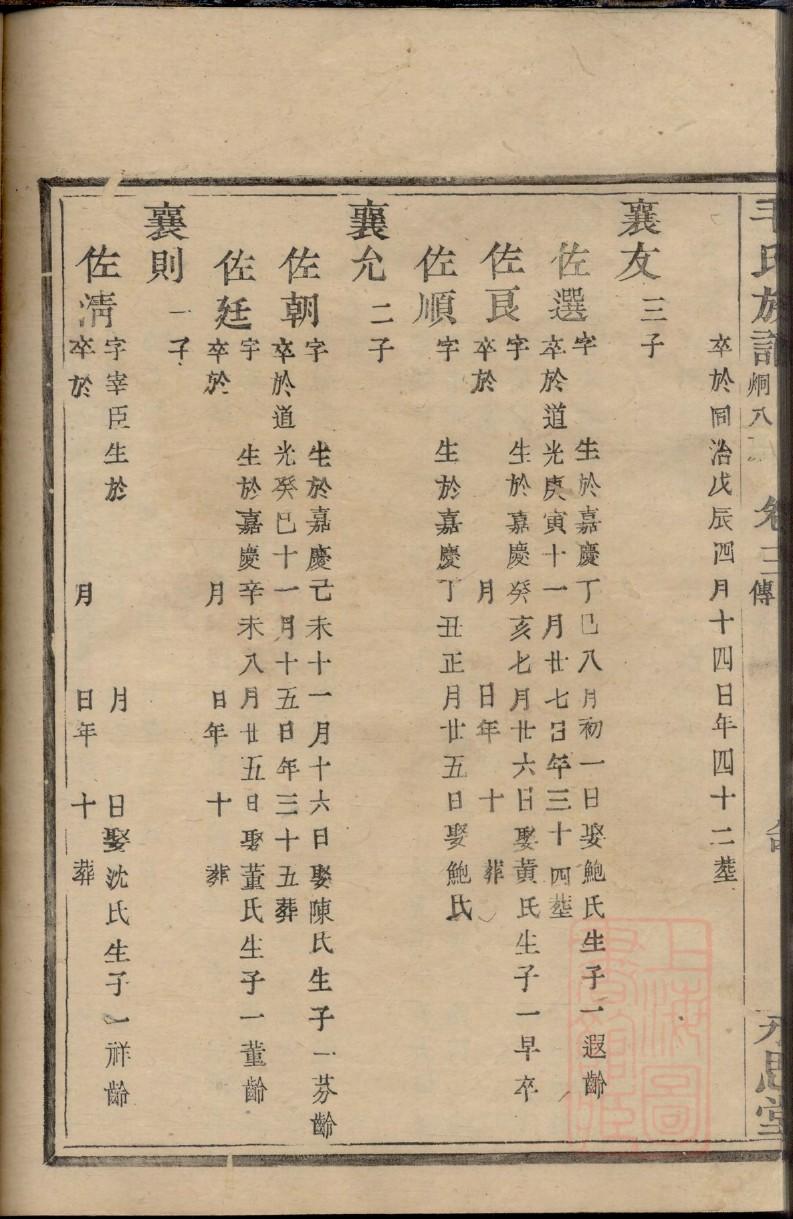 毛氏族譜 炯八 卷三 傳 永思堂
卒於同治戊辰四月十四日年四十二塟
襄友 三子
佐選 字 生於嘉慶丁巳八月初一日娶鮑氏生子一遐齡
卒於道光庚寅十一月廿七日年三十四塟
佐良 字 生於嘉慶癸亥七月廿六日娶黃氏生子一早卒
卒於 月 日年 十 葬
佐順 字 生於嘉慶丁丑正月廿五日娶鮑氏
襄允 二子
佐朝 字 生於嘉慶己未十一月十六日娶陳氏生子一芬齡
卒於道光癸巳十一月十五日年三十五葬
佐廷 字 生於嘉慶辛未八月廿五日娶董氏生子一董齡
卒於 月 日年 十 葬
襄則 一子
佐清 字宰臣生於 月 日娶沈氏生子一祥齡
卒於 月 日年 十 葬
上海圖書館藏